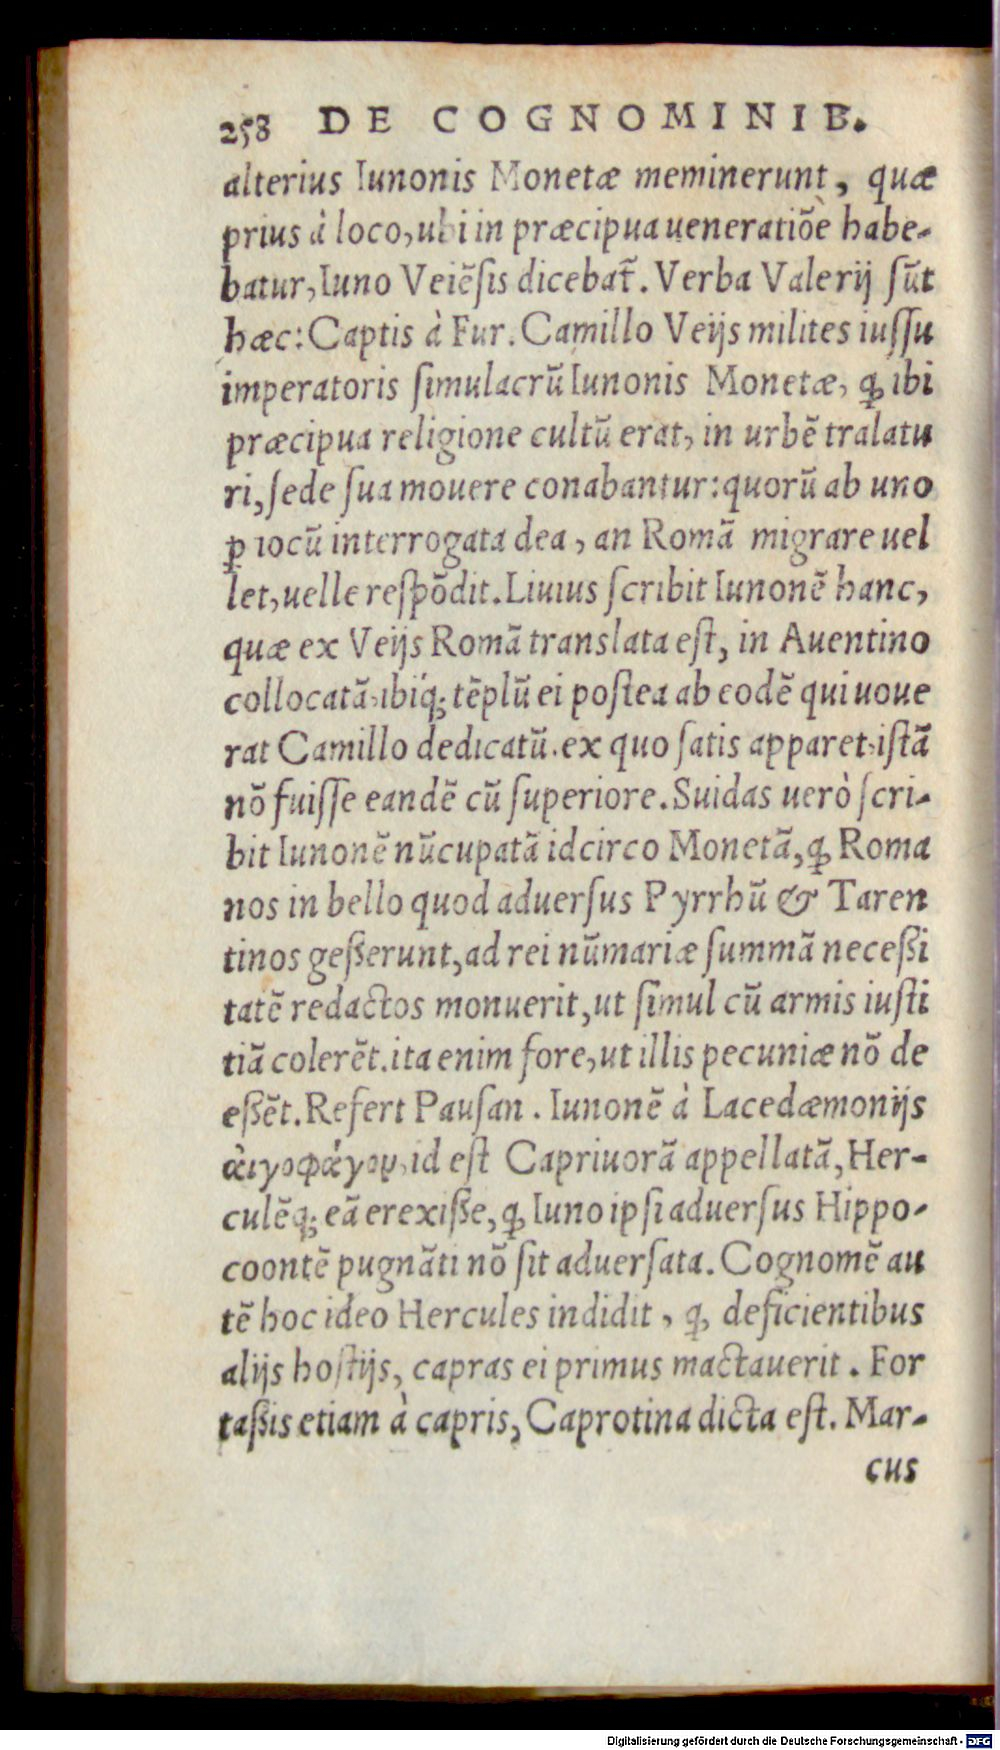 258 DE COGNOMINIB.
alterius Iunonis Monetæ meminerunt, quæ
prius à loco, ubi in præcipua ueneratiõe habe-
batur, Iuno Veiẽſis dicebat̃. Verba Valerij ſũt
hæc: Captis à Fur. Camillo Veijs milites iuſſu
imperatoris ſimulacrũ Iunonis Monetæ, ꝙ ibi
præcipua religione cultũ erat, in urbẽ tralatu
ri, ſede ſua mouere conabantur: quorũ ab uno
ꝑ iocũ interrogata dea, an Romã migrare uel
let, uelle reſpõdit. Liuius ſcribit Iunonẽ hanc,
quæ ex Veijs Romã translata eſt, in Auentino
collocatã, ibiq́; tẽplũ ei poſtea ab eodẽ qui uoue
rat Camillo dedicatũ. ex quo ſatis apparet, iſtã
nõ fuiſſe eandẽ cũ ſuperiore. Suidas uerò ſcri-
bit Iunonẽ nũcupatã idcirco Monetã, ꝙ Roma
nos in bello quod aduerſus Pyrrhũ & Taren
tinos geßerunt, ad rei nũmariæ ſummã neceßi
tatẽ redactos monuerit, ut ſimul cũ armis iuſti
tiã colerẽt. ita enim fore, ut illis pecuniæ nõ de
eßẽt. Refert Pauſan. Iunonẽ à Lacedæmonijs
ἀιγοφάγον, id eſt Capriuorã appellatã, Her-
culẽq; eã erexiße, ꝙ Iuno ipſi aduerſus Hippo-
coontẽ pugnãti nõ ſit aduerſata. Cognomẽ au
tẽ hoc ideo Hercules indidit, ꝙ deficientibus
alijs hoſtijs, capras ei primus mactauerit. For
taßis etiam à capris, Caprotina dicta eſt. Mar-
cus
Digitalisierung gefördert durch die Deutsche Forschungsgemeinschaft - DFG